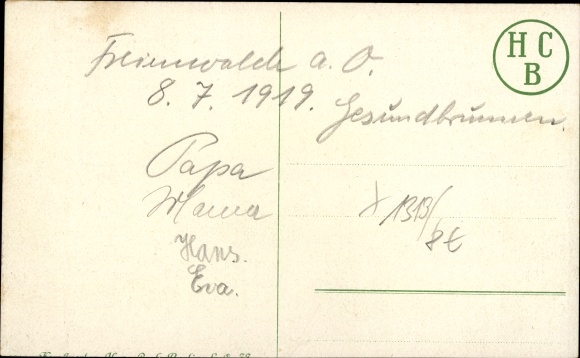 H C
B
Freienwalde a. O.
8. 7. 1919. Gesundbrunnen
Papa
Mama
Hans.
Eva.
X 1313/
8€